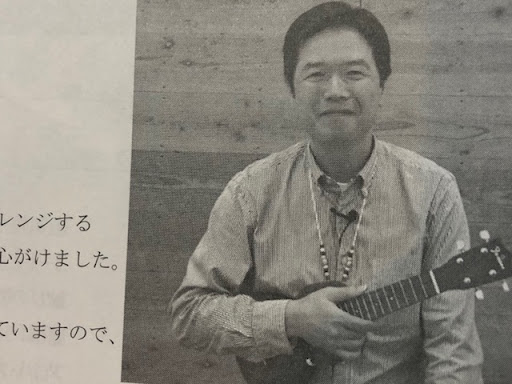 レンジする
心がけました。
ていますので、